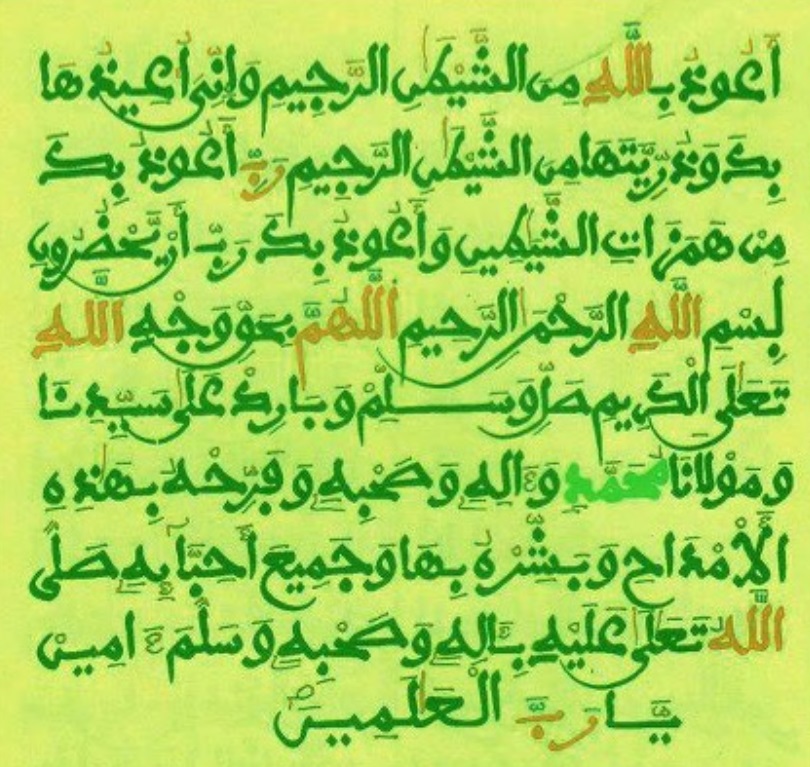 أعوذ بالله من الشيطن الرجيم وإني أعيذها
بك وذريتها من الشيطن الرجيم رب أعوذ بك
من همزات الشيطين وأعوذ بك رب أن يحضرون
بسم الله الرحمن الرحيم اللهم بحق وجه الله
تعلى الكريم صل وسلم وبارك على سيدنا
ومولانا محمد وءاله وصحبه وفرحه بهذه
الأمداح وبشره بها وجميع أحبابه صلى
الله تعلى عليه بآله وصحبه وسلم ءامين
يا رب العلمين